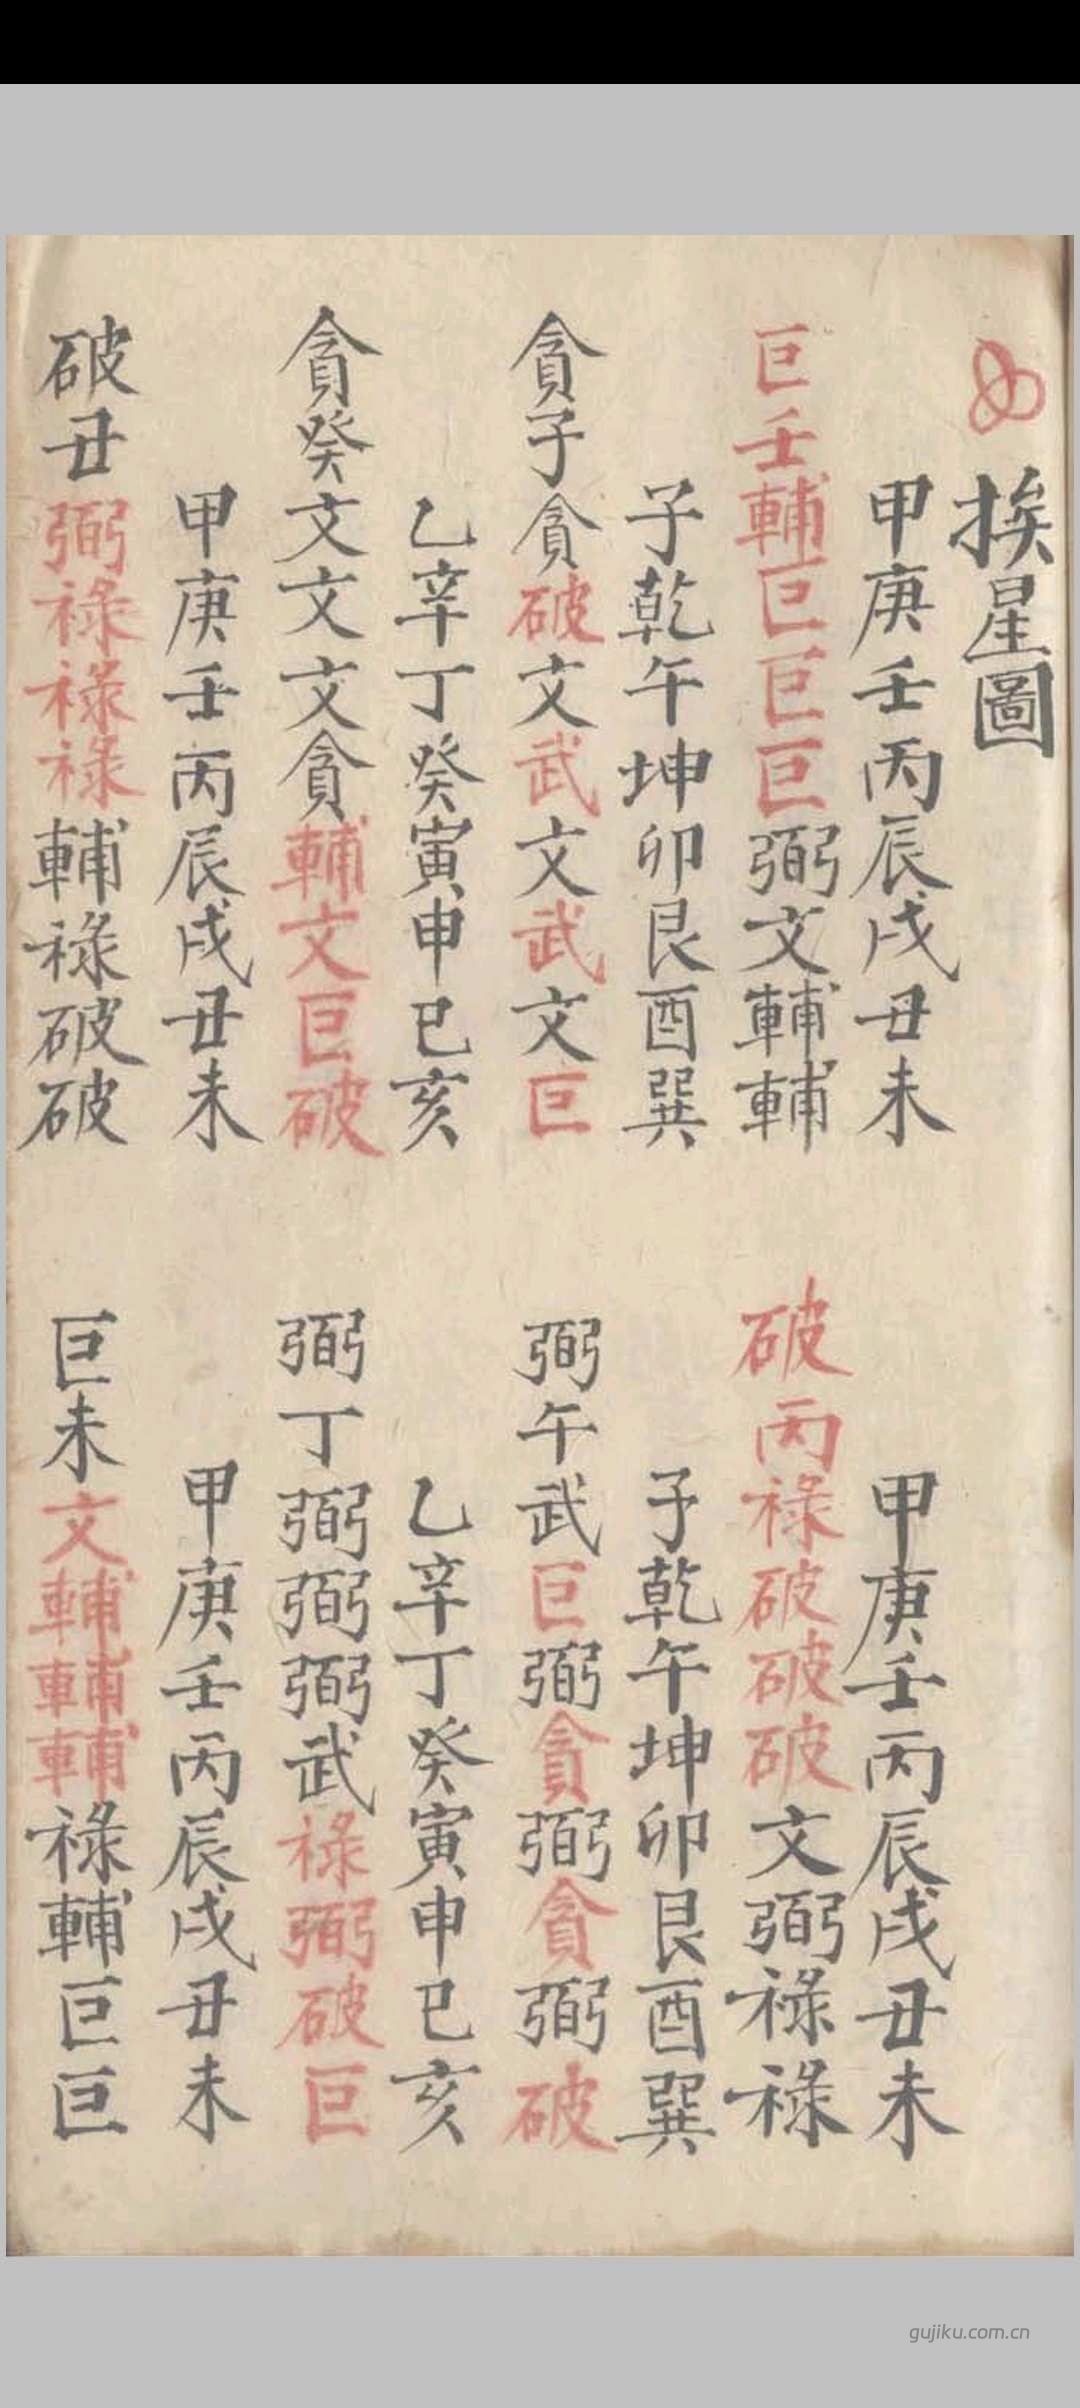 挨星圖
甲庚壬丙辰戌丑未
巨壬輔巨巨巨弼文輔輔
子乾午坤卯艮酉巽
貪子貪破文武文武文巨
乙辛丁癸寅申巳亥
貪癸文文文貪輔文巨破
甲庚壬丙辰戌丑未
破丑弼祿祿祿輔祿破破
甲庚壬丙辰戌丑未
破丙祿破破破文弼祿祿
子乾午坤卯艮酉巽
弼午武巨弼貪弼貪弼破
乙辛丁癸寅申巳亥
弼丁弼弼弼武祿弼破巨
甲庚壬丙辰戌丑未
巨未文輔輔輔祿輔巨巨
gujiku.com.cn